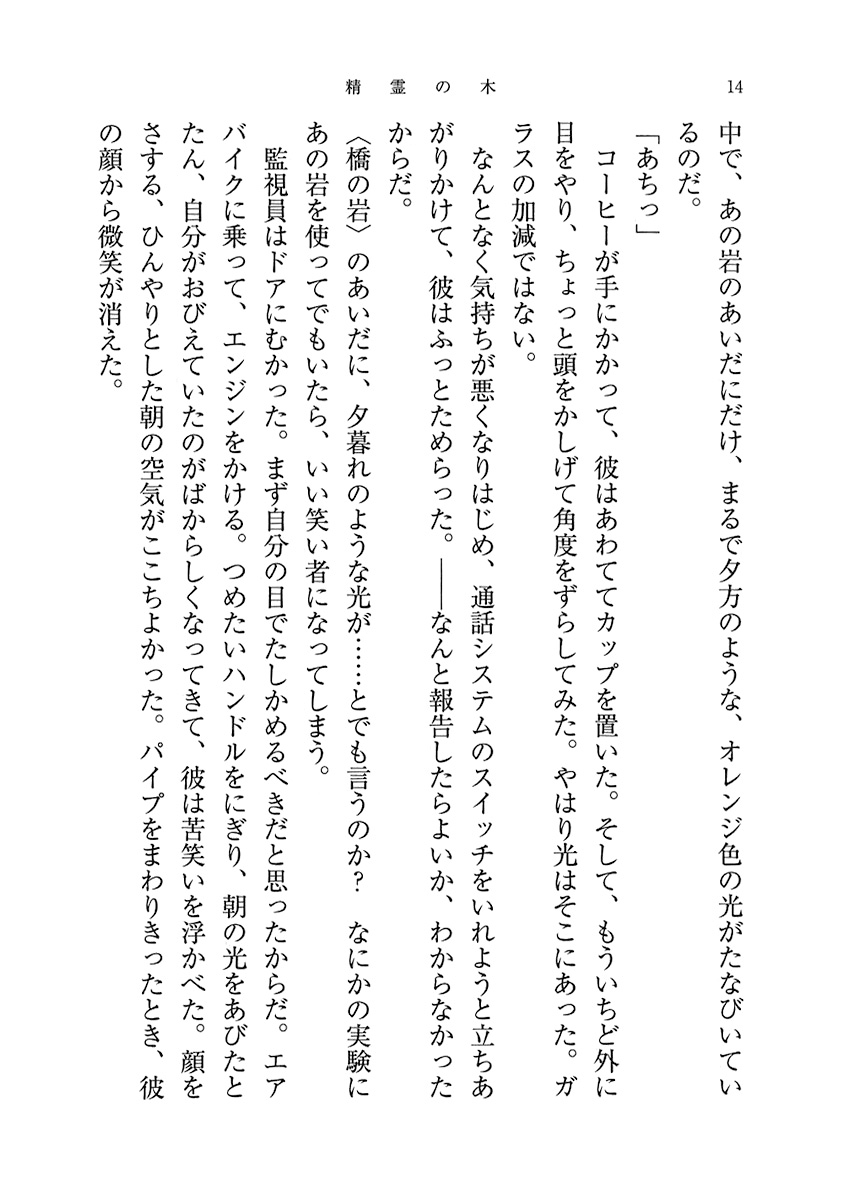 精霊の木
14
中で、あの岩のあいだにだけ、まるで夕方のような、オレンジ色の光がたなびいてい
るのだ。
「あちっ」
　コーヒーが手にかかって、彼はあわててカップを置いた。そして、もういちど外に
目をやり、ちょっと頭をかしげて角度をずらしてみた。やはり光はそこにあった。ガ
ラスの加減ではない。
　なんとなく気持ちが悪くなりはじめ、通話システムのスイッチをいれようと立ちあ
がりかけて、彼はふっとためらった。――なんと報告したらよいか、わからなかった
からだ。
〈橋の岩〉のあいだに、夕暮れのような光が……とでも言うのか？　なにかの実験に
あの岩を使ってでもいたら、いい笑い者になってしまう。
　監視員はドアにむかった。まず自分の目でたしかめるべきだと思ったからだ。エア
バイクに乗って、エンジンをかける。つめたいハンドルをにぎり、朝の光をあびたと
たん、自分がおびえていたのがばからしくなってきて、彼は苦笑いを浮かべた。顔を
さする、ひんやりとした朝の空気がここちよかった。パイプをまわりきったとき、彼
の顔から微笑が消えた。